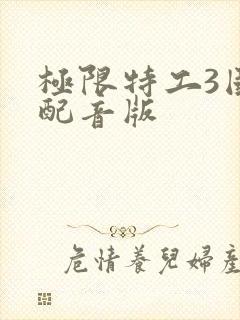 極限特工3国
配音版
危情養兒婦產